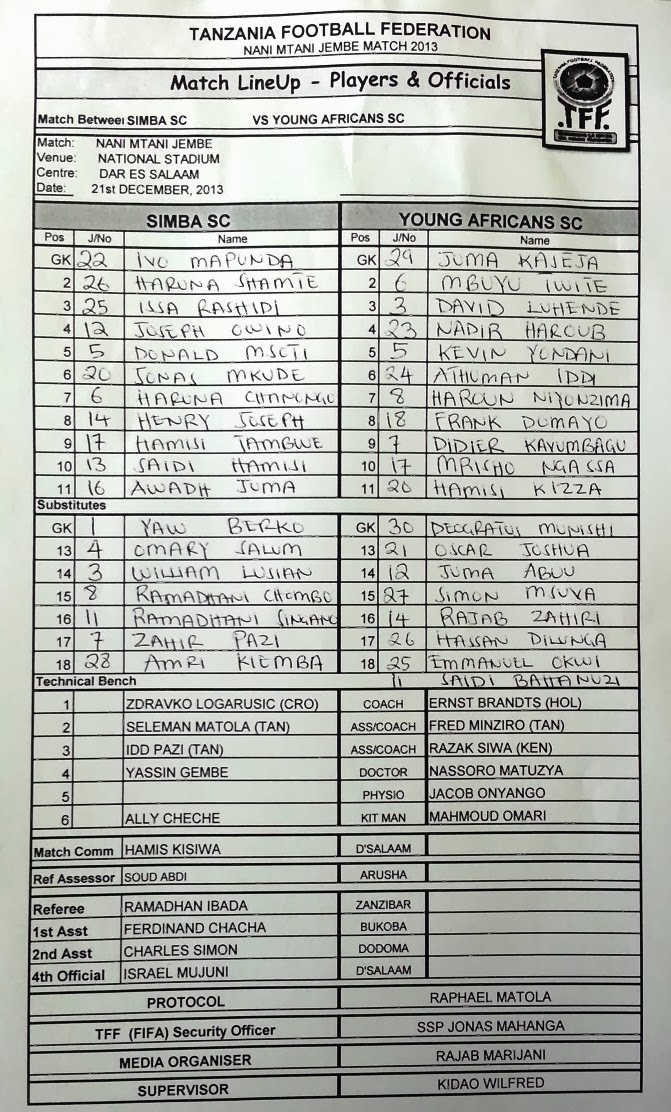 TANZANIA FOOTBALL FEDERATION
NANI MTANI JEMBE MATCH 2013
Match LineUp - Players & Officials
TFF.
Match Between SIMBA SC VS YOUNG AFRICANS SC
Match: NANI MTANI JEMBE
Venue: NATIONAL STADIUM
Centre: DAR ES SALAAM
Date: 21st DECEMBER, 2013
SIMBA SC YOUNG AFRICANS SC
Pos J/No Name Pos J/No Name
GK 22 IVO MAPUNDA GK 29 JUMA KASEJA
2 26 HARUNA SHAMTE 2 6 MBUYU TWITE
3 25 ISSA RASHIDI 3 3 DAVID LUHENDE
4 12 JOSEPH OWINO 4 23 NADIR HAROUB
5 5 DONALD MSOTI 5 5 KEVIN YONDANI
6 20 JONAS MKUDE 6 24 ATHUMAN IDDI
7 6 HARUNA CHANONGO 7 8 HAROUN NIYONZIMA
8 14 HENRY JOSEPH 8 18 FRANK DOMAYO
9 17 HAMISI TAMBWE 9 7 DIDIER KAVUMBAGU
10 13 SAIDI HAMISI 10 17 MRISHO NGASSA
11 16 AWADH JUMA 11 20 HAMISI KIZZA
Substitutes
GK 1 YAW BERKO GK 30 DEOGRATUS MUNISHI
13 4 OMARY SALUM 13 21 OSCAR JOSHUA
14 3 WILLIAM LUSIAN 14 12 JUMA ABUU
15 8 RAMADHANI CHOMBO 15 27 SIMON MSUVA
16 11 RAMADHANI SINGANO 16 14 RAJAB ZAHIRI
17 7 ZAHIR PAZI 17 26 HASSAN DILUNGA
18 28 AMRI KIEMBA 18 25 EMMANUEL OKWI
Technical Bench 11 SAIDI BAHANUZI
1 ZDRAVKO LOGARUSIC (CRO) COACH ERNST BRANDTS (HOL)
2 SELEMAN MATOLA (TAN) ASS/COACH FRED MINZIRO (TAN)
3 IDD PAZI (TAN) ASS/COACH RAZAK SIWA (KEN)
4 YASSIN GEMBE DOCTOR NASSORO MATUZYA
5 PHYSIO JACOB ONYANGO
6 ALLY CHECHE KIT MAN MAHMOUD OMARI
Match Comm HAMIS KISIWA D'SALAAM
Ref Assessor SOUD ABDI ARUSHA
Referee RAMADHAN IBADA ZANZIBAR
1st Asst FERDINAND CHACHA BUKOBA
2nd Asst CHARLES SIMON DODOMA
4th Official ISRAEL MUJUNI D'SALAAM
PROTOCOL RAPHAEL MATOLA
TFF (FIFA) Security Officer SSP JONAS MAHANGA
MEDIA ORGANISER RAJAB MARIJANI
SUPERVISOR KIDAO WILFRED